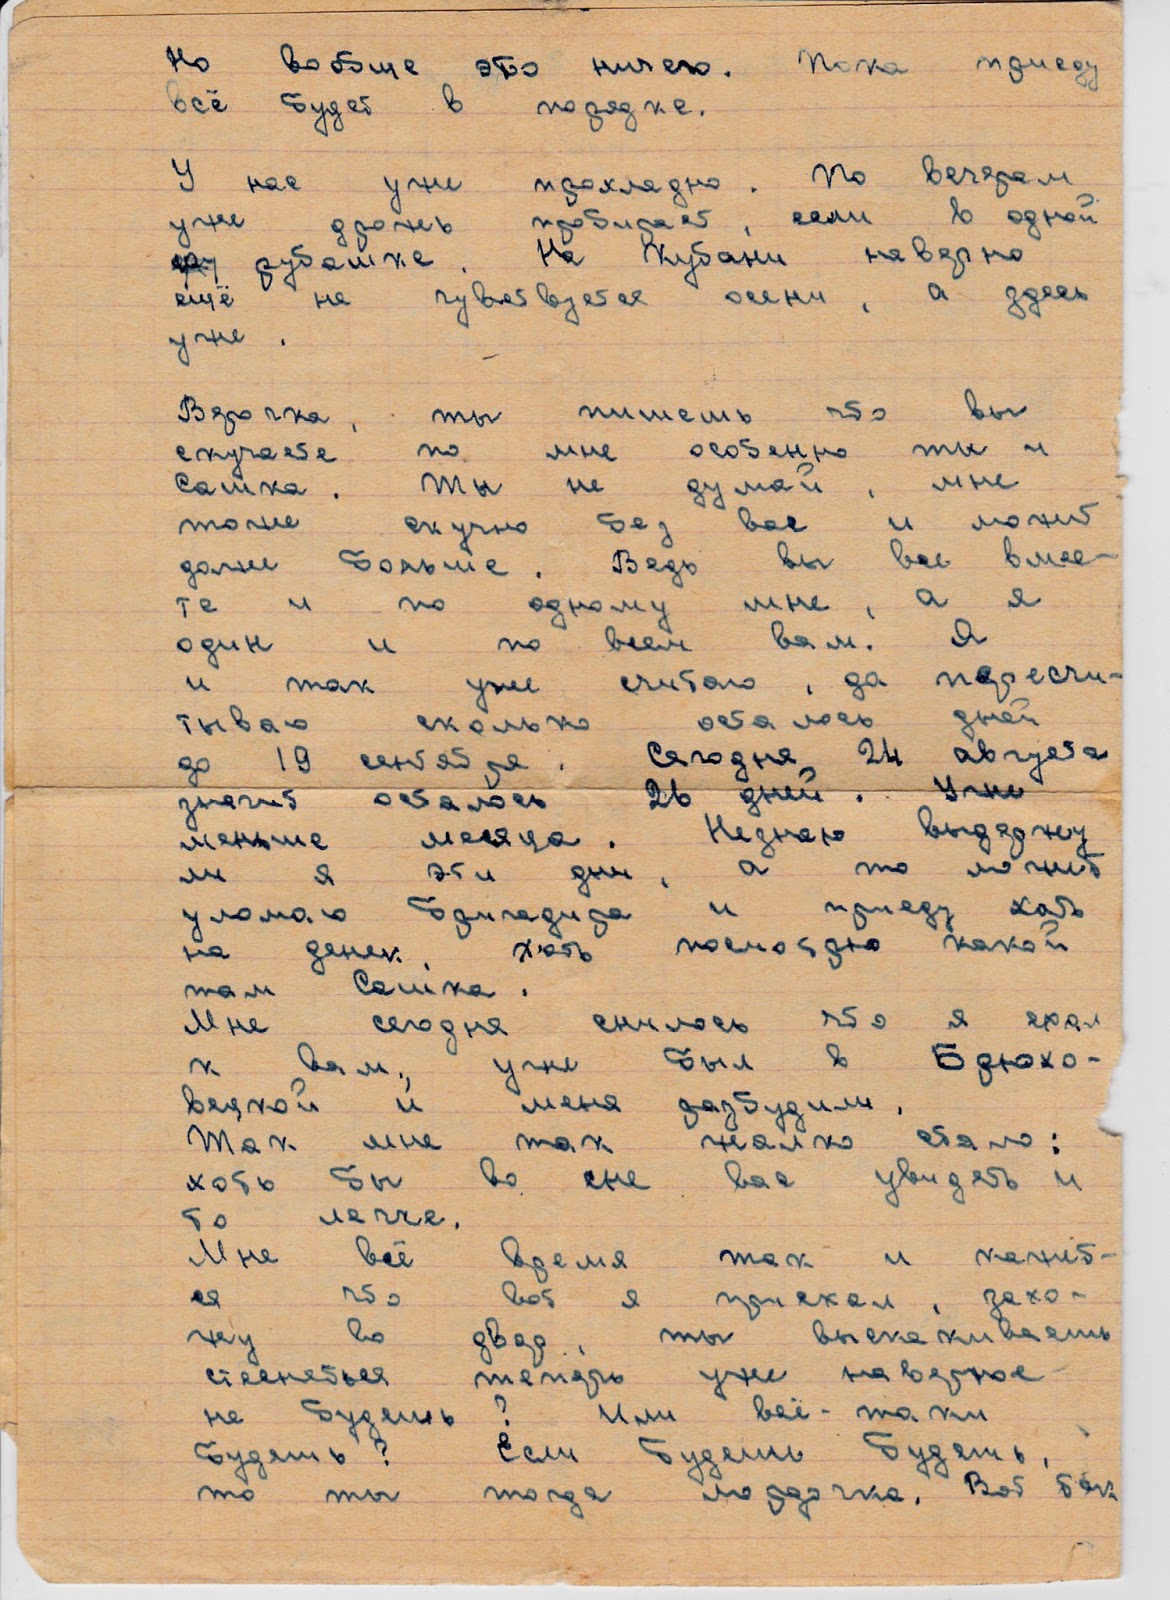 Но вобще это ничего. Пока приеду
всё будет в порядке.
У нас уже прохладно. По вечерам
уже дрожь пробирает, если в одной
рубашке. На Кубани наверно
ещё не чувствуется осени, а здесь
уже.
Верочка, ты пишешь что вы
скучаете по мне особенно ты и
Сашка. Ты не думай, мне
тоже скучно без вас и можит
даже больше. Ведь вы все вмес-
те и по одному мне, а я
один и по всем вам. Я
и так уже считаю, да пересчи-
тываю сколько осталось дней
до 19 сентября. Сегодня 24 августа
значит осталось 26 дней. Уже
меньше месяца. Незнаю выдержу
ли я эти дни, а то можит
уломаю бригадира и приеду хоть
на денек, хоть посмотрю какой
там Сашка.
Мне сегодня снилось что я ехал
к вам, уже был в Брюхо-
вецкой и меня разбудили.
Так мне так жалко стало:
хоть бы во сне вас увидеть и
то легче.
Мне всё время так и кажит-
ся что вот я приехал, захо-
жу во двор, ты выскакиваешь
стесняться теперь уже наверное
не будешь? Или всё-таки
будешь? Если будешь будешь,
то ты тогда мордочка. Вот так